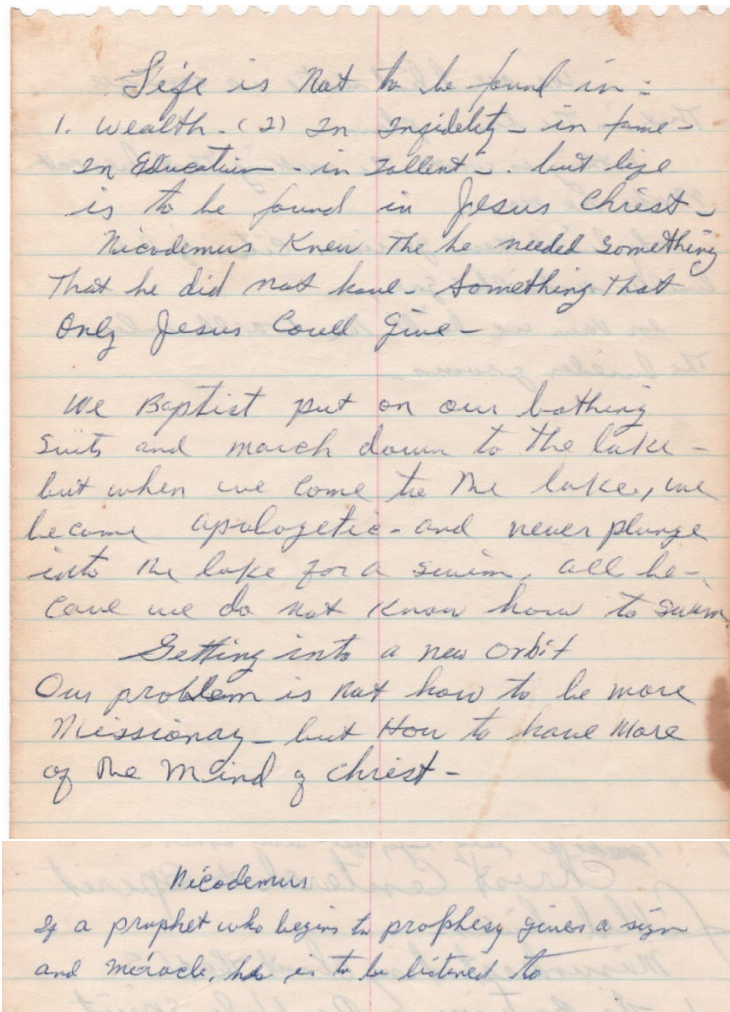 Life is Not to be found in:
1. Wealth - (2) In Infidelity - in fame -
In Education - in Tallent -. but life
is to be found in Jesus Christ -
Nicodemus Knew The he needed something
That he did not have - Something That
Only Jesus Could Give -
We Baptist put on our bathing
Suits and march down to the lake -
but when we come to the lake, we
become apologetic - and never plunge
into the lake for a swim, all be-
cause we do not know how to swim.
Getting into a new orbit
Our problem is not how to be more
Missionary - but How to have More
of the Mind of Christ -
Nicodemus
If a prophet who begins to prophesy gives a sign
and miracle, he is to be listened to